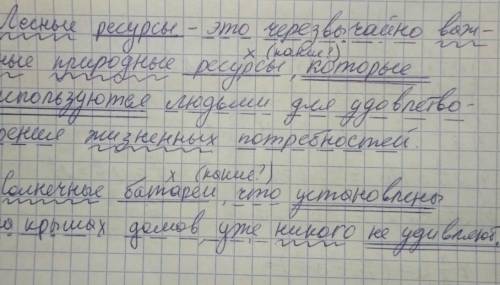 Лесные ресурсы - это черезвычайно важ-
х (какие?)
ные природные ресурсы, которые
используются людьми для удовлетво-
рения жизненных потребностей.
х (какие?)
солнечные батареи, что установлены
на крышах домов, уже никого не удивляют.